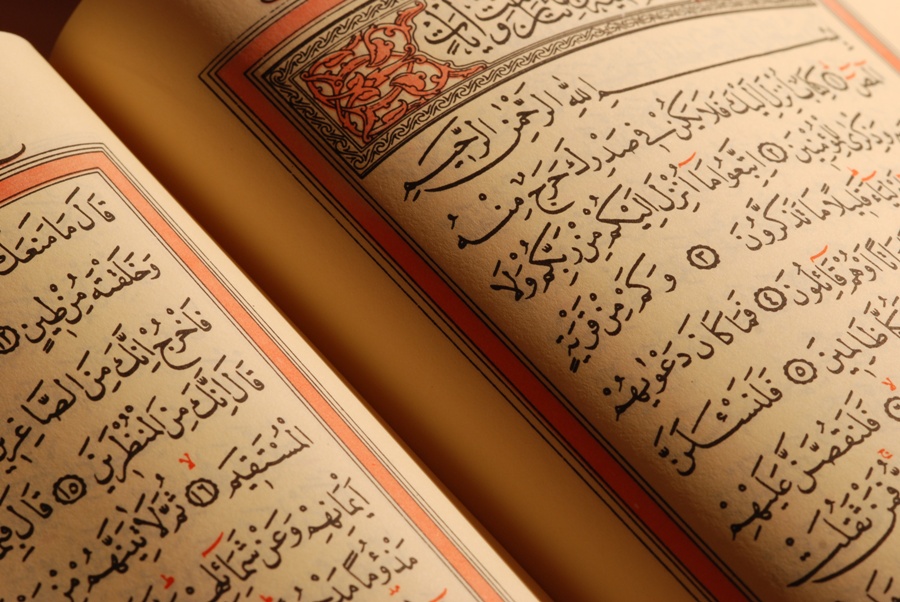 اللّٰهِ الرَّحْمٰنِ الرَّحِيمِ
كِتَابٌ أُنْزِلَ إِلَيْكَ فَلَا يَكُنْ فِي صَدْرِكَ حَرَجٌ مِنْهُ
وَذِكْرَى لِلْمُؤْمِنِينَ ٢ اِتَّبِعُوا مَا أُنْزِلَ إِلَيْكُمْ مِنْ رَبِّكُمْ وَلَا
قَلِيلًا مَا تَذَكَّرُونَ ٣ وَكَمْ مِنْ قَرْيَةٍ
أَوْ هُمْ قَائِلُونَ ٤ فَمَا كَانَ دَعْوٰيهُمْ
ظَالِمِينَ ٥ فَلَنَسْـَٔلَنَّ
فَلَنَقُصَّنَّ عَلَيْهِمْ
فَمَنْ ثَقُلَتْ
قَالَ مَا مَنَعَكَ
وَخَلَقْتَهُ مِنْ طِينٍ ١٢
فَاخْرُجْ إِنَّكَ مِنَ الصَّاغِرِينَ
قَالَ إِنَّكَ مِنَ الْمُنْظَرِينَ ١٥ قَالَ
الْمُسْتَقِيمَ ١٦ ثُمَّ لَاٰتِيَنَّهُمْ مِنْ
أَيْمَانِهِمْ وَعَنْ شَمَائِلِهِمْ
مَذْءُومًا